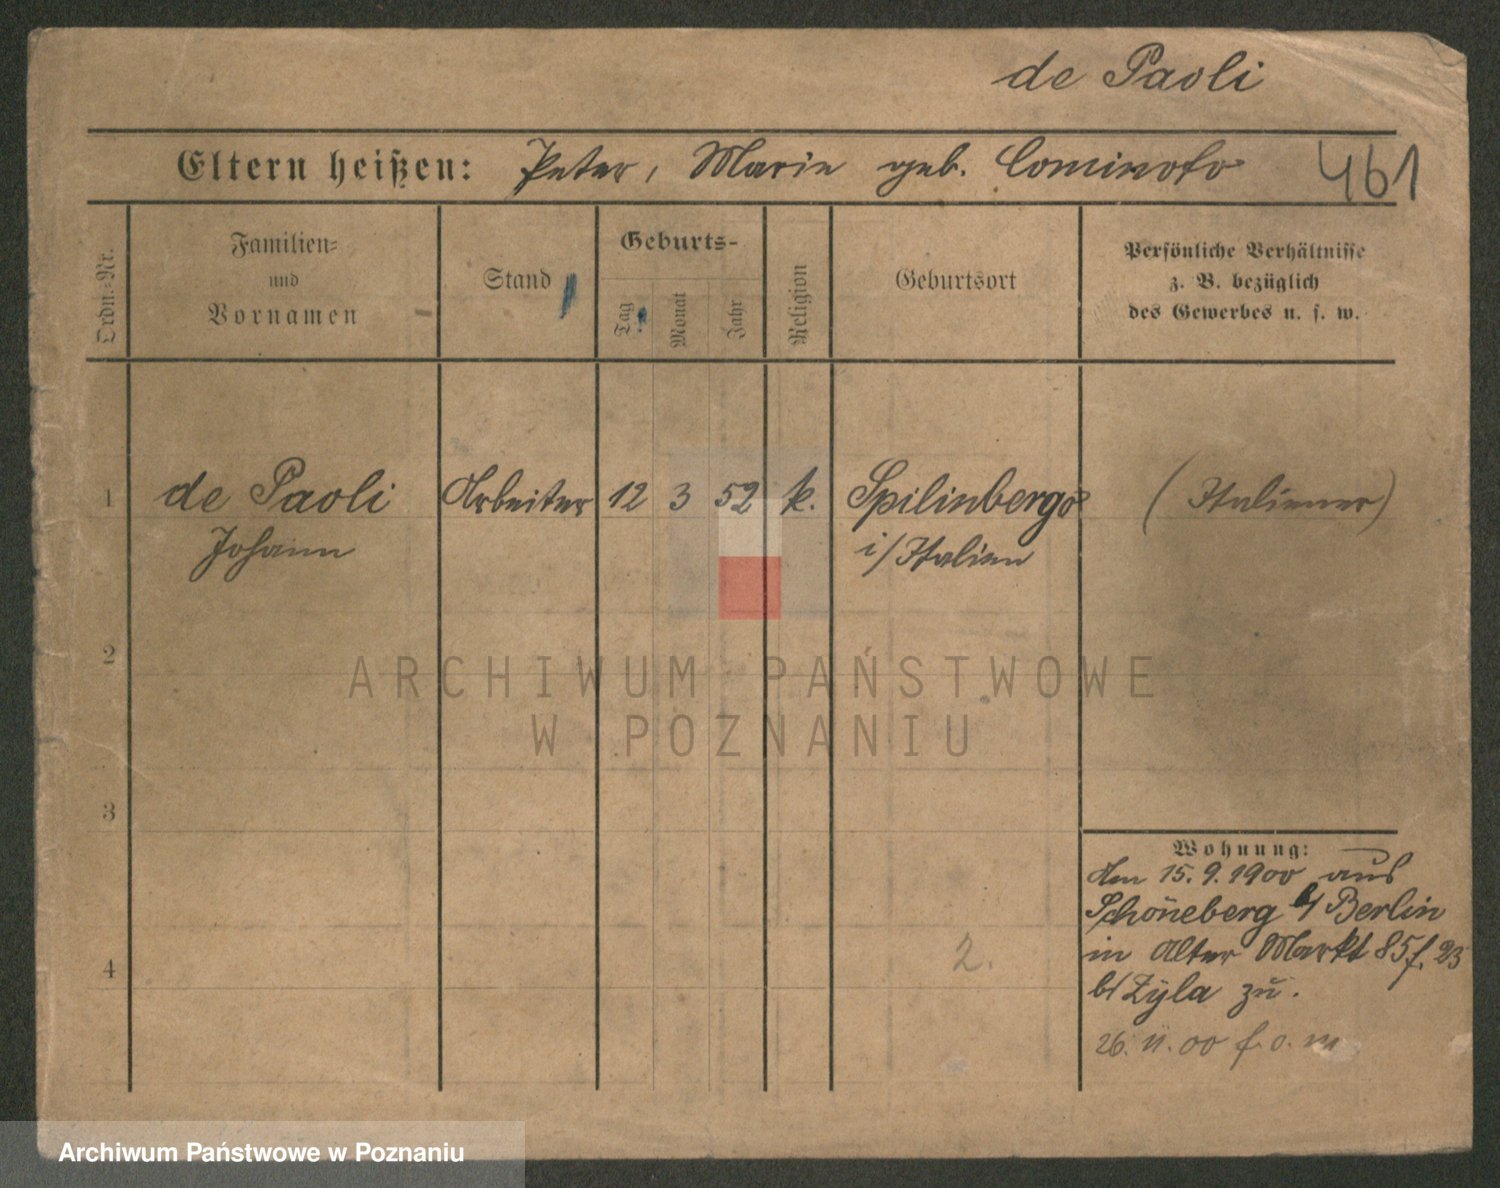 de Paoli
Eltern heißen: Peter, Marie geb. Cominoto 461
Ordn.-Nr.
Familien-
und
Vornamen
Stand
Geburts-
Tag
Monat
Jahr
Religion
Geburtsort
Persönliche Verhältnisse
z. B. bezüglich
des Gewerbes u. s. w.
1 de Paoli Arbeiter 12 3 52 k. Spilinbergo (Italiener)
Johann i/Italien
2
ARCHIWUM PAŃSTWOWE
W POZNANIU
3
Wohnung:
Am 15.9.1900 aus
Schöneberg b/Berlin
in Alter Markt 85 f. 23
b/Zyla zu.
4
2.
26. 11. 00 f. o. m
Archiwum Państwowe w Poznaniu